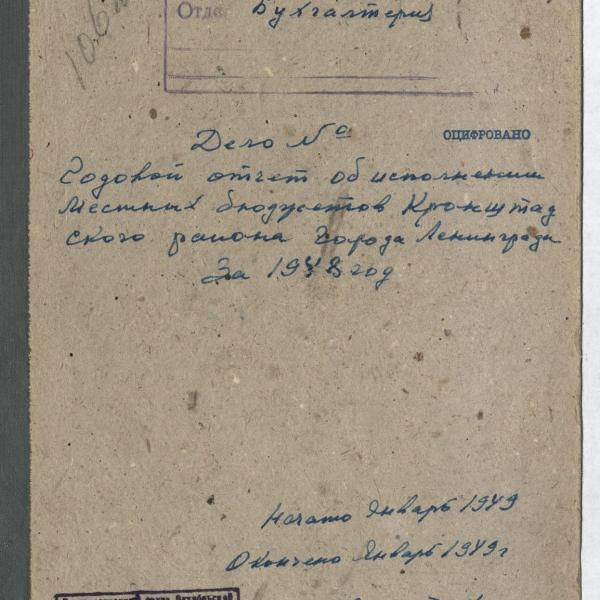 Отде
Бухгалтерия
Дело №
ОЦИФРОВАНО
Годовой отчет об исполнении
местных бюджетов Кронштад
ского района города Ленинграда
За 1948 год
Начато Январь 1949
Окончено Январь 1949 г